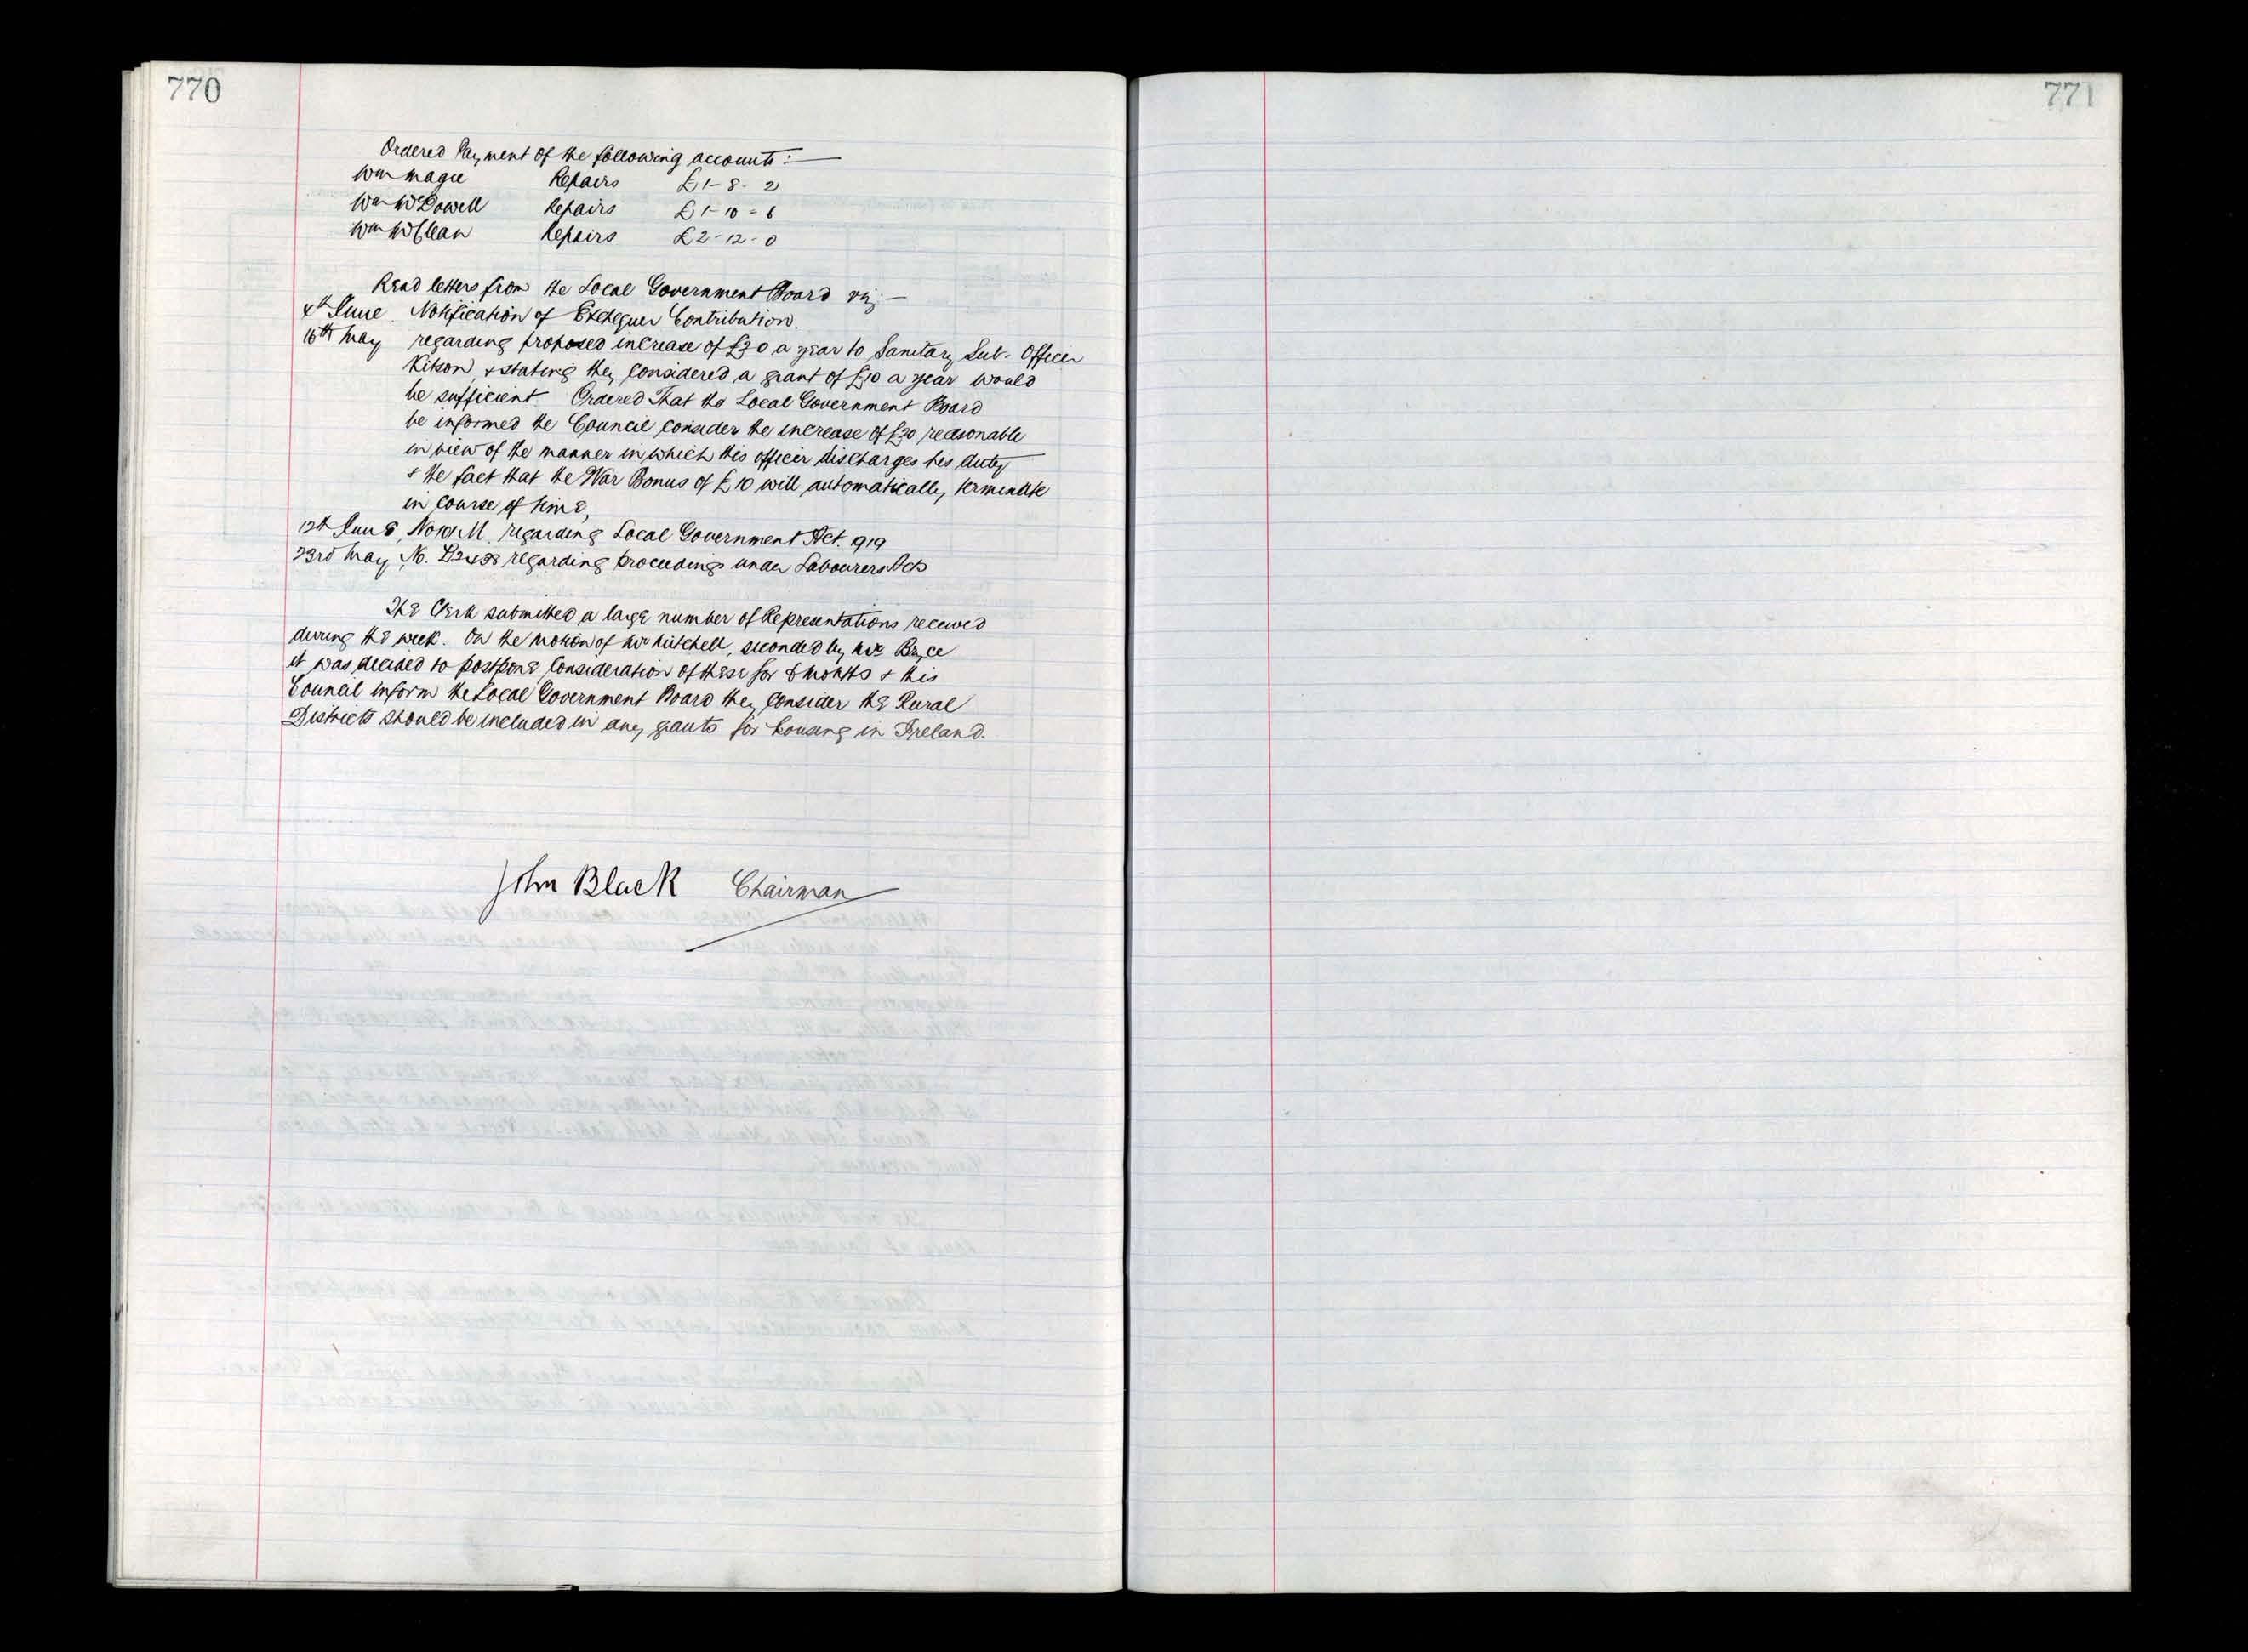 770
Ordered Payment of the following accounts :—
Wm Magee Repairs £1-8-2
Wm McDowell Repairs £1-10-6
Wm McClean Repairs £2-12-0
Read letters from the Local Government Board viz;—
4th June. Notification of Exchequer Contribution.
16th May regarding proposed increase of £30 a year to Sanitary Sub-Officer
Kitson, & stating they considered a grant of £10 a year would
be sufficient. Ordered That the Local Government Board
be informed the Council consider the increase of £30 reasonable
in view of the manner in which this officer discharges his duty
& the fact that the War Bonus of £10 will automatically terminate
in course of time,
12th June, regarding Local Government Act. 1919
23rd May, No. regarding proceedings under Labourers Acts
The Clerk submitted a large number of Representations received
during the week. On the motion of Mr Mitchell, seconded by Mr Bryce
it was decided to postpone consideration of these for 6 months & this
Council inform the Local Government Board they consider the Rural
Districts should be included in any grants for housing in Ireland.
John Black Chairman
771